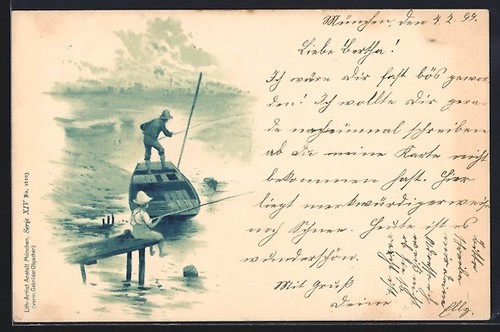 München, den 4.2.99.
Liebe Bertha!
Ich wäre Dir fast bös gewor-
den! Ich wollte Dir gera-
de noch einmal schreiben
ob Du meine Karte nicht
bekommen hast. Hier
liegt merkwürdiger weise
noch Schnee. Heute ist es
wunderschön.
Mit Gruß
Deine Elly.
Lith.-Artist. Anstalt, München. Serie XIV No. 12103
(vorm. Gebrüder Obpacher)